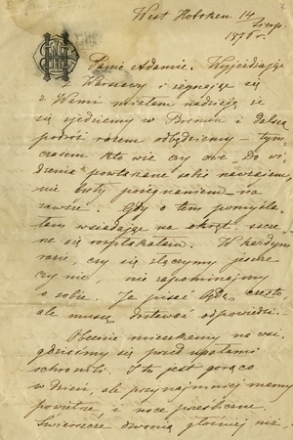 West Hoboken 14
1878 r.
Panie Adamie. Wyjeżdżając
z Warszawy i żegnając się
z Wami miałam nadzieję że
się zjedziemy w Bremie i dalszą
podróż razem odbędziemy – tym
czasem kto wie czy owe „Do wi
dzenia" powtarzane sobie nawzajem,
nie były pożegnaniem na
zawsze. Gdy o tem pomyśla
łam wsiadając na okręt,
W każdym
razie, czy się złączymy jeszcze
czy nie, nie zapominajmy
o sobie. Ja pisać będę często,
ale muszę dostawać odpowiedzi.
Obecnie mieszkamy na wsi,
gdzieśmy się przed upałami
schronili. I tu jest gorąco
w dzień, ale przynajmniej mamy
powietrze, i noce
Świerszcze dzwonią głośniej niż